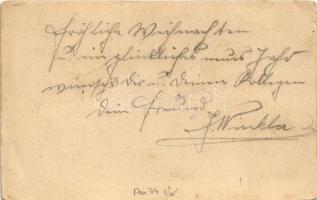 Fröhliche Weihnachten
u. ein glückliches neues Jahr
wünscht dir u. deinen Kollegen
dein Freund
J. Winkla